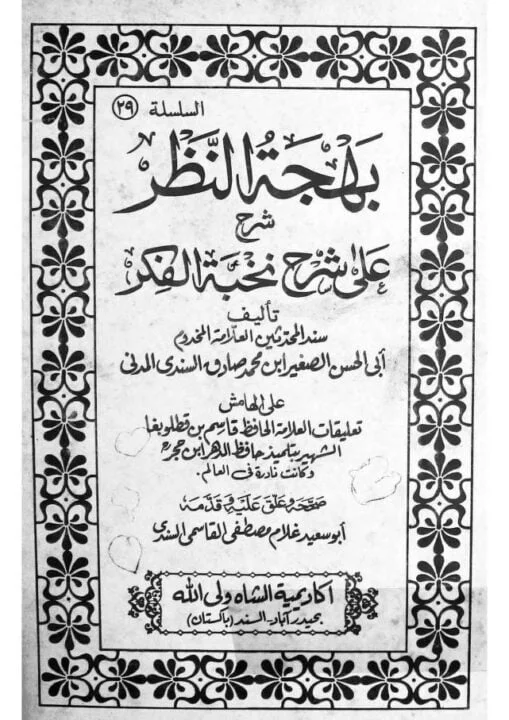 السلسلة (٢٩)
بَهْجَةُ النَّظَر
شرح
عَلى شرح نخبة الفِكر
تأليف
سند المحدثين العلّامة المخدوم
أبي الحسن الصغير ابن محمد صادق السندي المدني
على الهامش
تعليقات العلامة الحافظ قاسم بن قطلوبغا
الشهير بتلميذ حافظ الدهر ابن حجر
وكانت نادرة في العالم.
صَحَّحَهُ عَلّقَ عَلَيْهِ وَقَدَّمَهُ
أبو سعيد غلام مصطفى القاسمي السندي
اكاديمية الشاه ولى الله
بحيدرآباد-السند (باكستان)